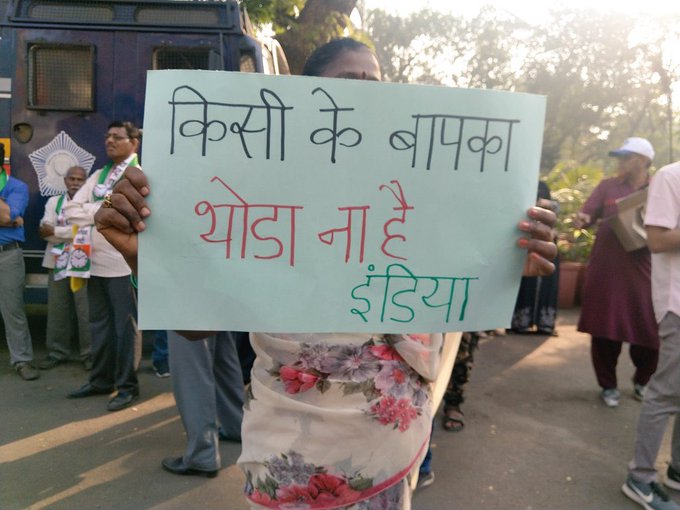 किसी के बापका
थोडा ना है
इंडिया